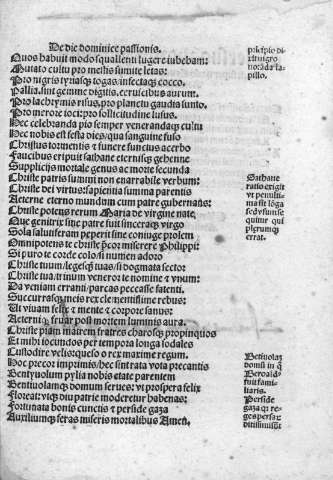 De die dominice passionis.
Quos habuit modo squallenti lugere iubebam:
Mutato cultu pro mestis sumite letas:
Pro nigris tyriasqȝ togas, infectaqȝ cocco.
Pallia, sint gemme digitis, cerruicibus aurum.
Pro lachrymis risus, pro planctu gaudia sunto.
Pro merore ioci: pro sollicitudine lusus.
Hec celebranda pio semper venerandaqȝ cultu
Hec nobis est festa dies: qua sanguine fuso
Christus tormentis & funere functus acerbo
Faucibus eripuit sathane eternisqȝ gehenne
Supplicijs mortale genus ac morte secunda
Christe patris summi non enarrabile verbum:
Christe dei virtus: sapientia summa parentis
Aeterne eterno mundum cum patre gubernans:
Christe potens rerum Maria de virgine nate,
Que genitrix sine patre fuit sinceraqȝ virgo
Sola salutiferam peperit sine coniuge prolem
Omnipotens te christe p̃cor miserere Philippi:
Si puro te corde colo/ si numen adoro
Christe tuum/ legesqȝ tuas/ si dogmata sector
Christe tua/trinum veneror te nomine & vnum:
Da veniam erranti/ parcas peccasse fatenti.
Succurrasqȝ meis rex clementissime rebus:
Ut viuam felix & mente & corpore sanus:
Aeterniqȝ fruar post mortem luminis aura.
Christe piam matrem fratres charosqȝ propinquos
Et mihi iocundos per tempora longa sodales
Custodire velis: queso o rex maxime regum.
Hoc precor imprimis/ hec sint rata vota precantis
Bentyuolum pylia nobis etate parentem
Bentiuolamqȝ domum serues: vt prospera felix
Floreat: vtqȝ diu patrie moderetur habenas:
Fortunata bonis cunctis & perside gaza
Auxiliumqȝ feras miseris mortalibus Amen.
Sathane
ratio exigit
Bentiuolaȝ
domũ in q̃
Beroald
fuit fami-
liaris.
Perside
gaza qȝ re-
ges persaȝ